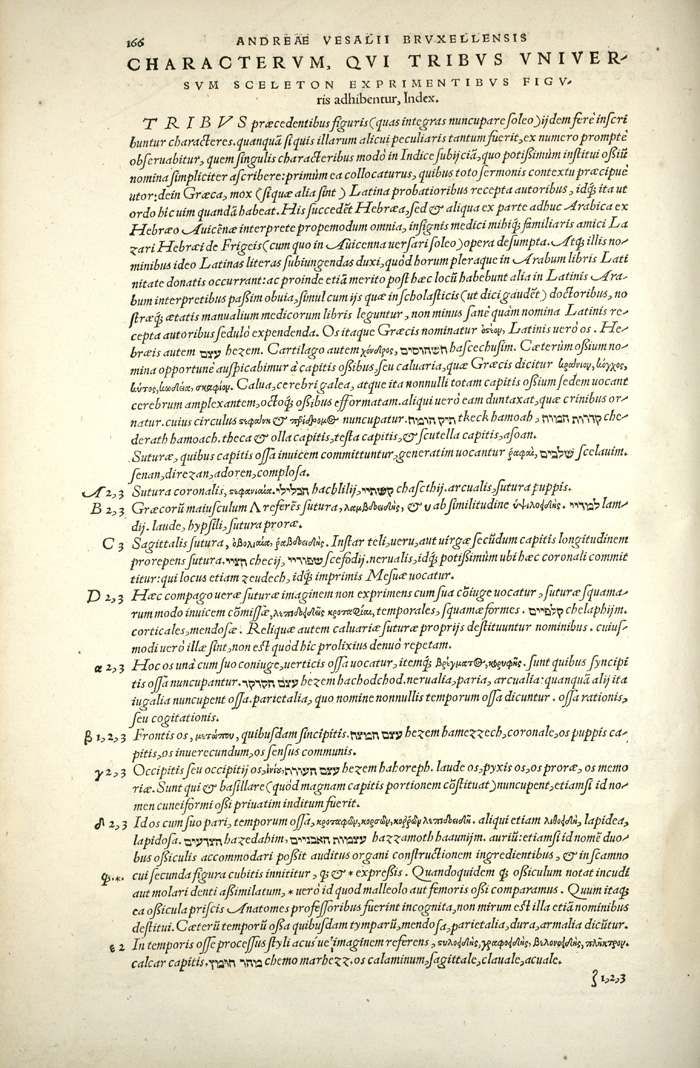 166 ANDREAE VESALII BRVXELLENSIS
CHARACTERVM, QVI TRIBVS VNIVER-
SVM SCELETON EXPRIMENTIBVS FIGV-
ris adhibentur, Index.
TRIBVS præcedentibus figuris (quas integras nuncupare soleo) ijdem ferè inscri
buntur characteres. quanquã si quis illarum alicui peculiaris tantum fuerit, ex numero prompte
obseruabitur, quem singulis characteribus modò in Indice subijciã, quo potißimùm institui oßiũ
nomina simpliciter ascribere: primùm ea collocaturus, quibus toto sermonis contextu præcipuè
utor: dein Græca, mox (si quæ alia sint) Latina probatioribus recepta autoribus, idq́; ita ut
ordo hic uim quandã habeat. His succedẽt Hebræa, sed & aliqua ex parte adhuc Arabica ex
Hebræo Auicẽnæ interprete propemodum omnia, insignis medici mihiq́; familiaris amici La
zari Hebræi de Frigeis (cum quo in Auicenna uersari soleo) opera desumpta. Atq́; illis no-
minibus ideo Latinas literas subiungendas duxi, quòd horum pleraque in Arabum libris Lati
nitate donatis occurrant: ac proinde etiã merito post hæc locũ habebunt alia in Latinis Ara-
bum interpretibus paßim obuia, simul cum ijs quæ in scholasticis (ut dici gaudẽt) doctoribus, no
stræq́; ætatis manualium medicorum libris leguntur, non minus sanè quàm nomina Latinis re-
cepta autoribus sedulò expendenda. Os itaque Græcis nominatur ὀστέον, Latinis uerò os. He-
bræis autem עצם hezem. Cartilago autem χόνδρος, השחוסים hascechusim. Cæterùm oßium no-
mina opportunè auspicabimur à capitis oßibus, seu caluaria, quæ Græcis dicitur κρανίον, κόγχος,
κύτος, κωδεία, σκαφίον. Calua, cerebri galea, atque ita nonnulli totam capitis oßium sedem uocant
cerebrum amplexantem, octoq́; oßibus efformatam. aliqui uerò eam duntaxat, quæ crinibus or-
natur. cuius circulus στεφάνη & περίδρομος nuncupatur. תיק המוח tkeck hamoah, קדרות המוח che-
derath hamoach. theca & olla capitis, testa capitis, & scutella capitis, asoan.
Suturæ, quibus capitis ossa inuicem committuntur, generatim uocantur ῥαφαὶ, שלבים scelauim.
senan, direzan, adoren, complosa.
A 2,3 Sutura coronalis, στεφανιαία. הכלילי hachlilij, קשתיי chascthij. arcualis, sutura puppis.
B 2,3 Græcorũ maiusculum Λ referẽs sutura, λαμβδοειδὴς, & υ ab similitudine ὑψιλοειδής. למדיי lam-
dij. laude, hypsili, sutura proræ.
C 3 Sagittalis sutura, ὀβελιαία, ῥαβδοειδής. Instar teli, ueru, aut uirgæ secũdum capitis longitudinem
prorepens sutura. חציי checij, שפודיי scefodij. neruialis, idq́; potißimùm ubi hæc coronali commit
titur: qui locus etiam zeudech, idq́; imprimis Mesuæ uocatur.
D 2,3 Hæc compago ueræ suturæ imaginem non exprimens cum sua cõiuge uocatur, suturæ squama-
rum modo inuicem cõmissæ, λεπιδοειδεῖς κροταφίαι, temporales, squamæformes. קלפיים chelaphijm.
corticales, mendosæ. Reliquæ autem caluariæ suturæ proprijs destituuntur nominibus. cuius-
modi uerò illæ sint, non est quòd hic prolixius denuò repetam.
α 2,3 Hoc os unà cum suo coniuge, uerticis ossa uocatur, itemq́; βρέγματος, κορυφῆς. sunt quibus syncipi
tis ossa nuncupantur. עצם הקדקד hezem hachodchod. neruialia, paria, arcualia: quanquã alij ita
iugalia nuncupent ossa. parietalia, quo nomine nonnullis temporum ossa dicuntur. ossa rationis,
seu cogitationis.
β 1,2,3 Frontis os, μετώπου, quibusdam sincipitis. עצם המצח hezem hamezzech, coronale, os puppis ca-
pitis, os inuerecundum, os sensus communis.
γ 2,3 Occipitis seu occipitij os, ἰνίου. עצם העורף hezem hahoreph. laude os, pyxis os, os proræ, os memo
riæ. Sunt qui & basillare (quòd magnam capitis portionem cõstituat) nuncupent, etiamsi id no-
men cuneiformi oßi priuatim inditum fuerit.
δ 2,3 Id os cum suo pari, temporum ossa, κροτάφων, κορσῶν, κοῤῥῶν, λεπιδοειδῆ. aliqui etiam λιθοειδῆ, lapidea,
lapidosa. הצדעים hazedahim, עצמות האבניים hazzamoth haaunijm. auriũ: etiamsi id nomẽ duo-
bus oßiculis accommodari poßit auditus organi constructionem ingredientibus, & in scamno
ϙ.*. cui secunda figura cubitis innititur, ϙ & * expreßis. Quandoquidem ϙ oßiculum notat incudi
aut molari denti aßimilatum, * uerò id quod malleolo aut femoris oßi comparamus. Quum itaq́;
ea oßicula priscis Anatomes professoribus fuerint incognita, non mirum est illa etiã nominibus
destitui. Cæterũ temporũ oßa quibusdam tymparũ, mendosa, parietalia, dura, armalia dicũtur.
ε 2 In temporis osse processus styli acus ue imaginem referens, στυλοειδής, γραφοειδής, βελονοειδής, πλῆκτρον.
calcar capitis. מהר חומץ chemo marhezz. os calaminum, sagittale, clauale, acuale.
ζ 1,2,3